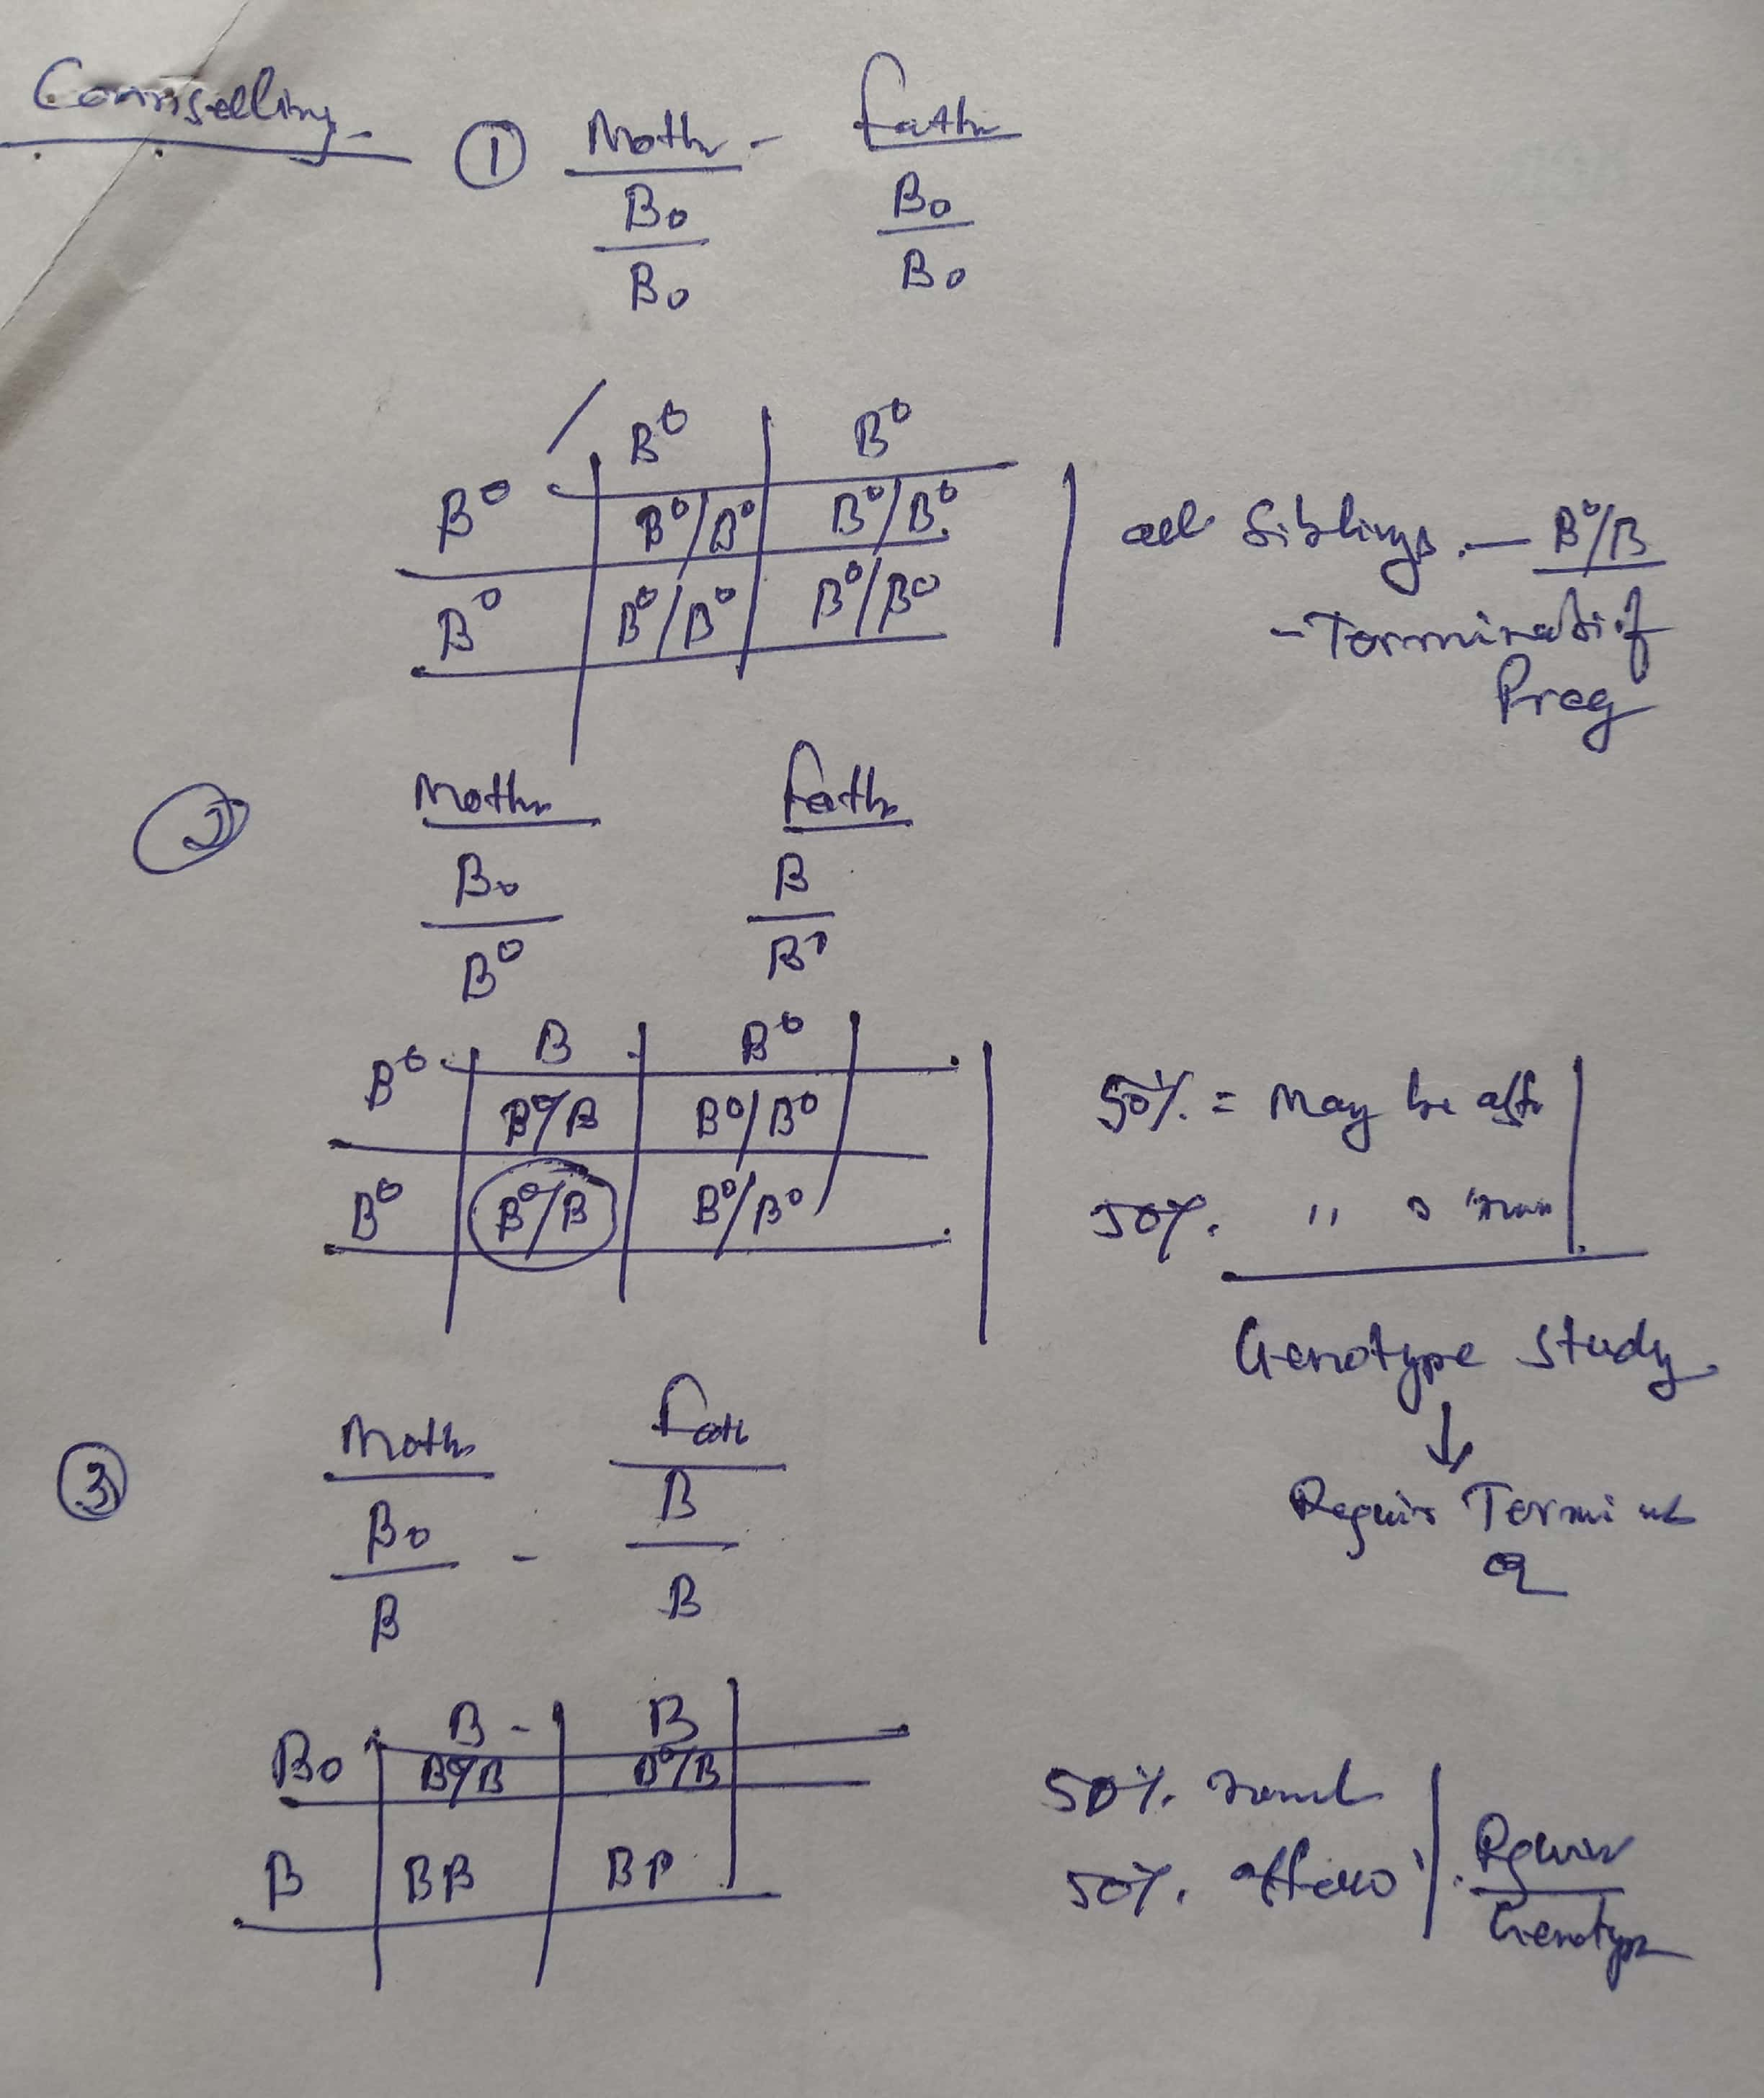 Counselling
① Moth - Fath
Bo Bo
Bo Bo
B⁰ B⁰
B⁰ B⁰/B⁰ B⁰/B⁰
B⁰ B⁰/B⁰ B⁰/B⁰
all Siblings - B⁰/B
- Terminati of
Preg
②
Moth Fath
Bo B
B⁰ B⁰
B B⁰
B⁰ B⁰/B B⁰/B⁰
B⁰ B⁰/B B⁰/B⁰
50% = May be aff
50% "
Genotype Study
↓
Requir Termi
③ Moth Fath
Bo - B
B B
B - B
Bo B⁰/B B⁰/B
B BB BB
50%
50%
Requir
Genotype